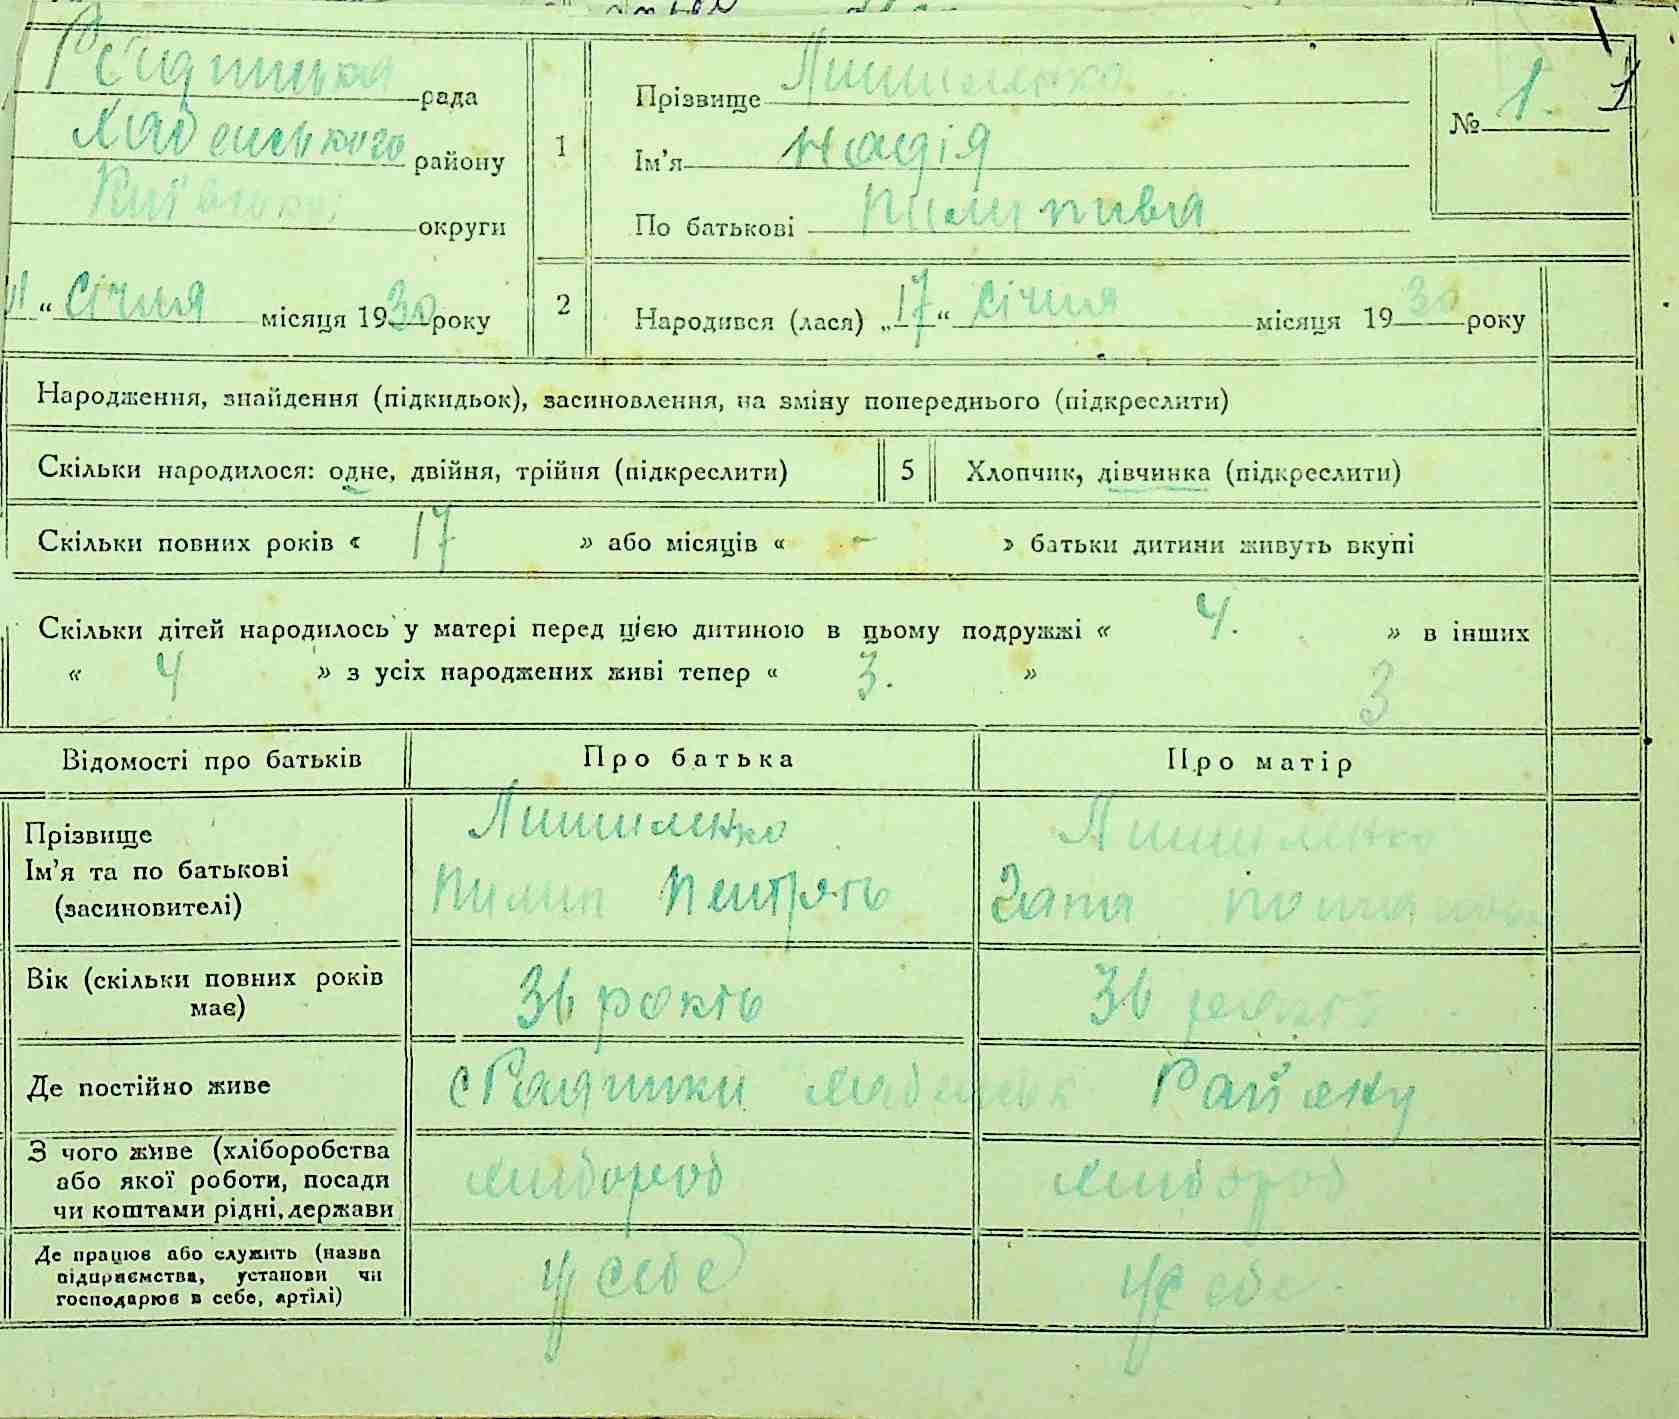 рада
Хабенського району
Київської округи
“ січня місяця 1930 року
1
Прізвище
Ім’я Надія
По батькові Пилипивна
№ 1. 1
2
Народився (лася) „17“ січня місяця 1930 року
Народження, знайдення (підкидьок), засиновлення, на зміну попереднього (підкреслити)
Скільки народилося: одне, двійня, трійня (підкреслити)
5
Хлопчик, дівчинка (підкреслити)
Скільки повних років « 17 » або місяців « - » батьки дитини живуть вкупі
Скільки дітей народилось у матері перед цією дитиною в цьому подружжі « 4. » в інших
« 4 » з усіх народжених живі тепер « 3. » 3
Відомості про батьків
Про батька
Про матір
Прізвище
Ім’я та по батькові
(засиновителі)
Пилип
Вік (скільки повних років
має)
36 рокіо
36
Де постійно живе
с Райяну
З чого живе (хліборобства
або якої роботи, посади
чи коштами рідні, держави
хлибороб
хлибороб
Де працює або служить (назва
підприємства, установи чи
господарює в себе, артілі)
у себе
у себе